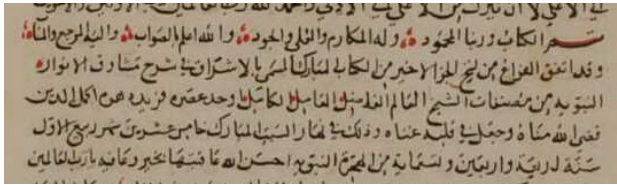 تم الكتاب وربنا المحمود وله المكارم والعلى والجود والله اعلم بالصواب واليه المرجع والمآب
وقد اتفق الفراغ من نسخ الجزء الاخير من الكتاب المبارك المسمى بالاشراق في شرح مشارق الانوار
النبويه من مصنفات الشيخ العالم الفاضل الكامل وحيد عصره فريد دهره اكمل الدين
قضى الله مناه وجعل في قلبه غناه وذلك في نهار السبت المبارك خامس عشرين شهر ربيع الاول
سنة اربعة واربعين وتسماية من الهجرة النبويه احسن الله عاقبتها بخير وعافيه يا رب العالمين